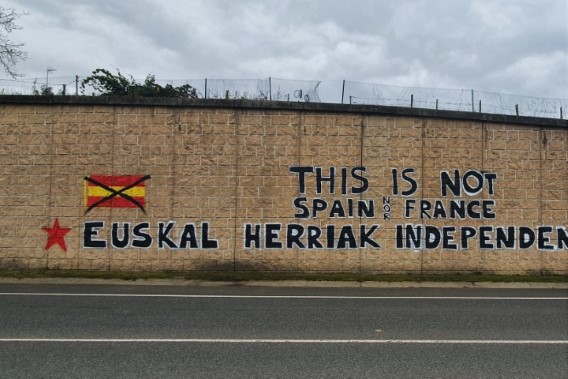 THIS IS NOT
SPAIN NOR FRANCE
EUSKAL HERRIAK INDEPENDEN